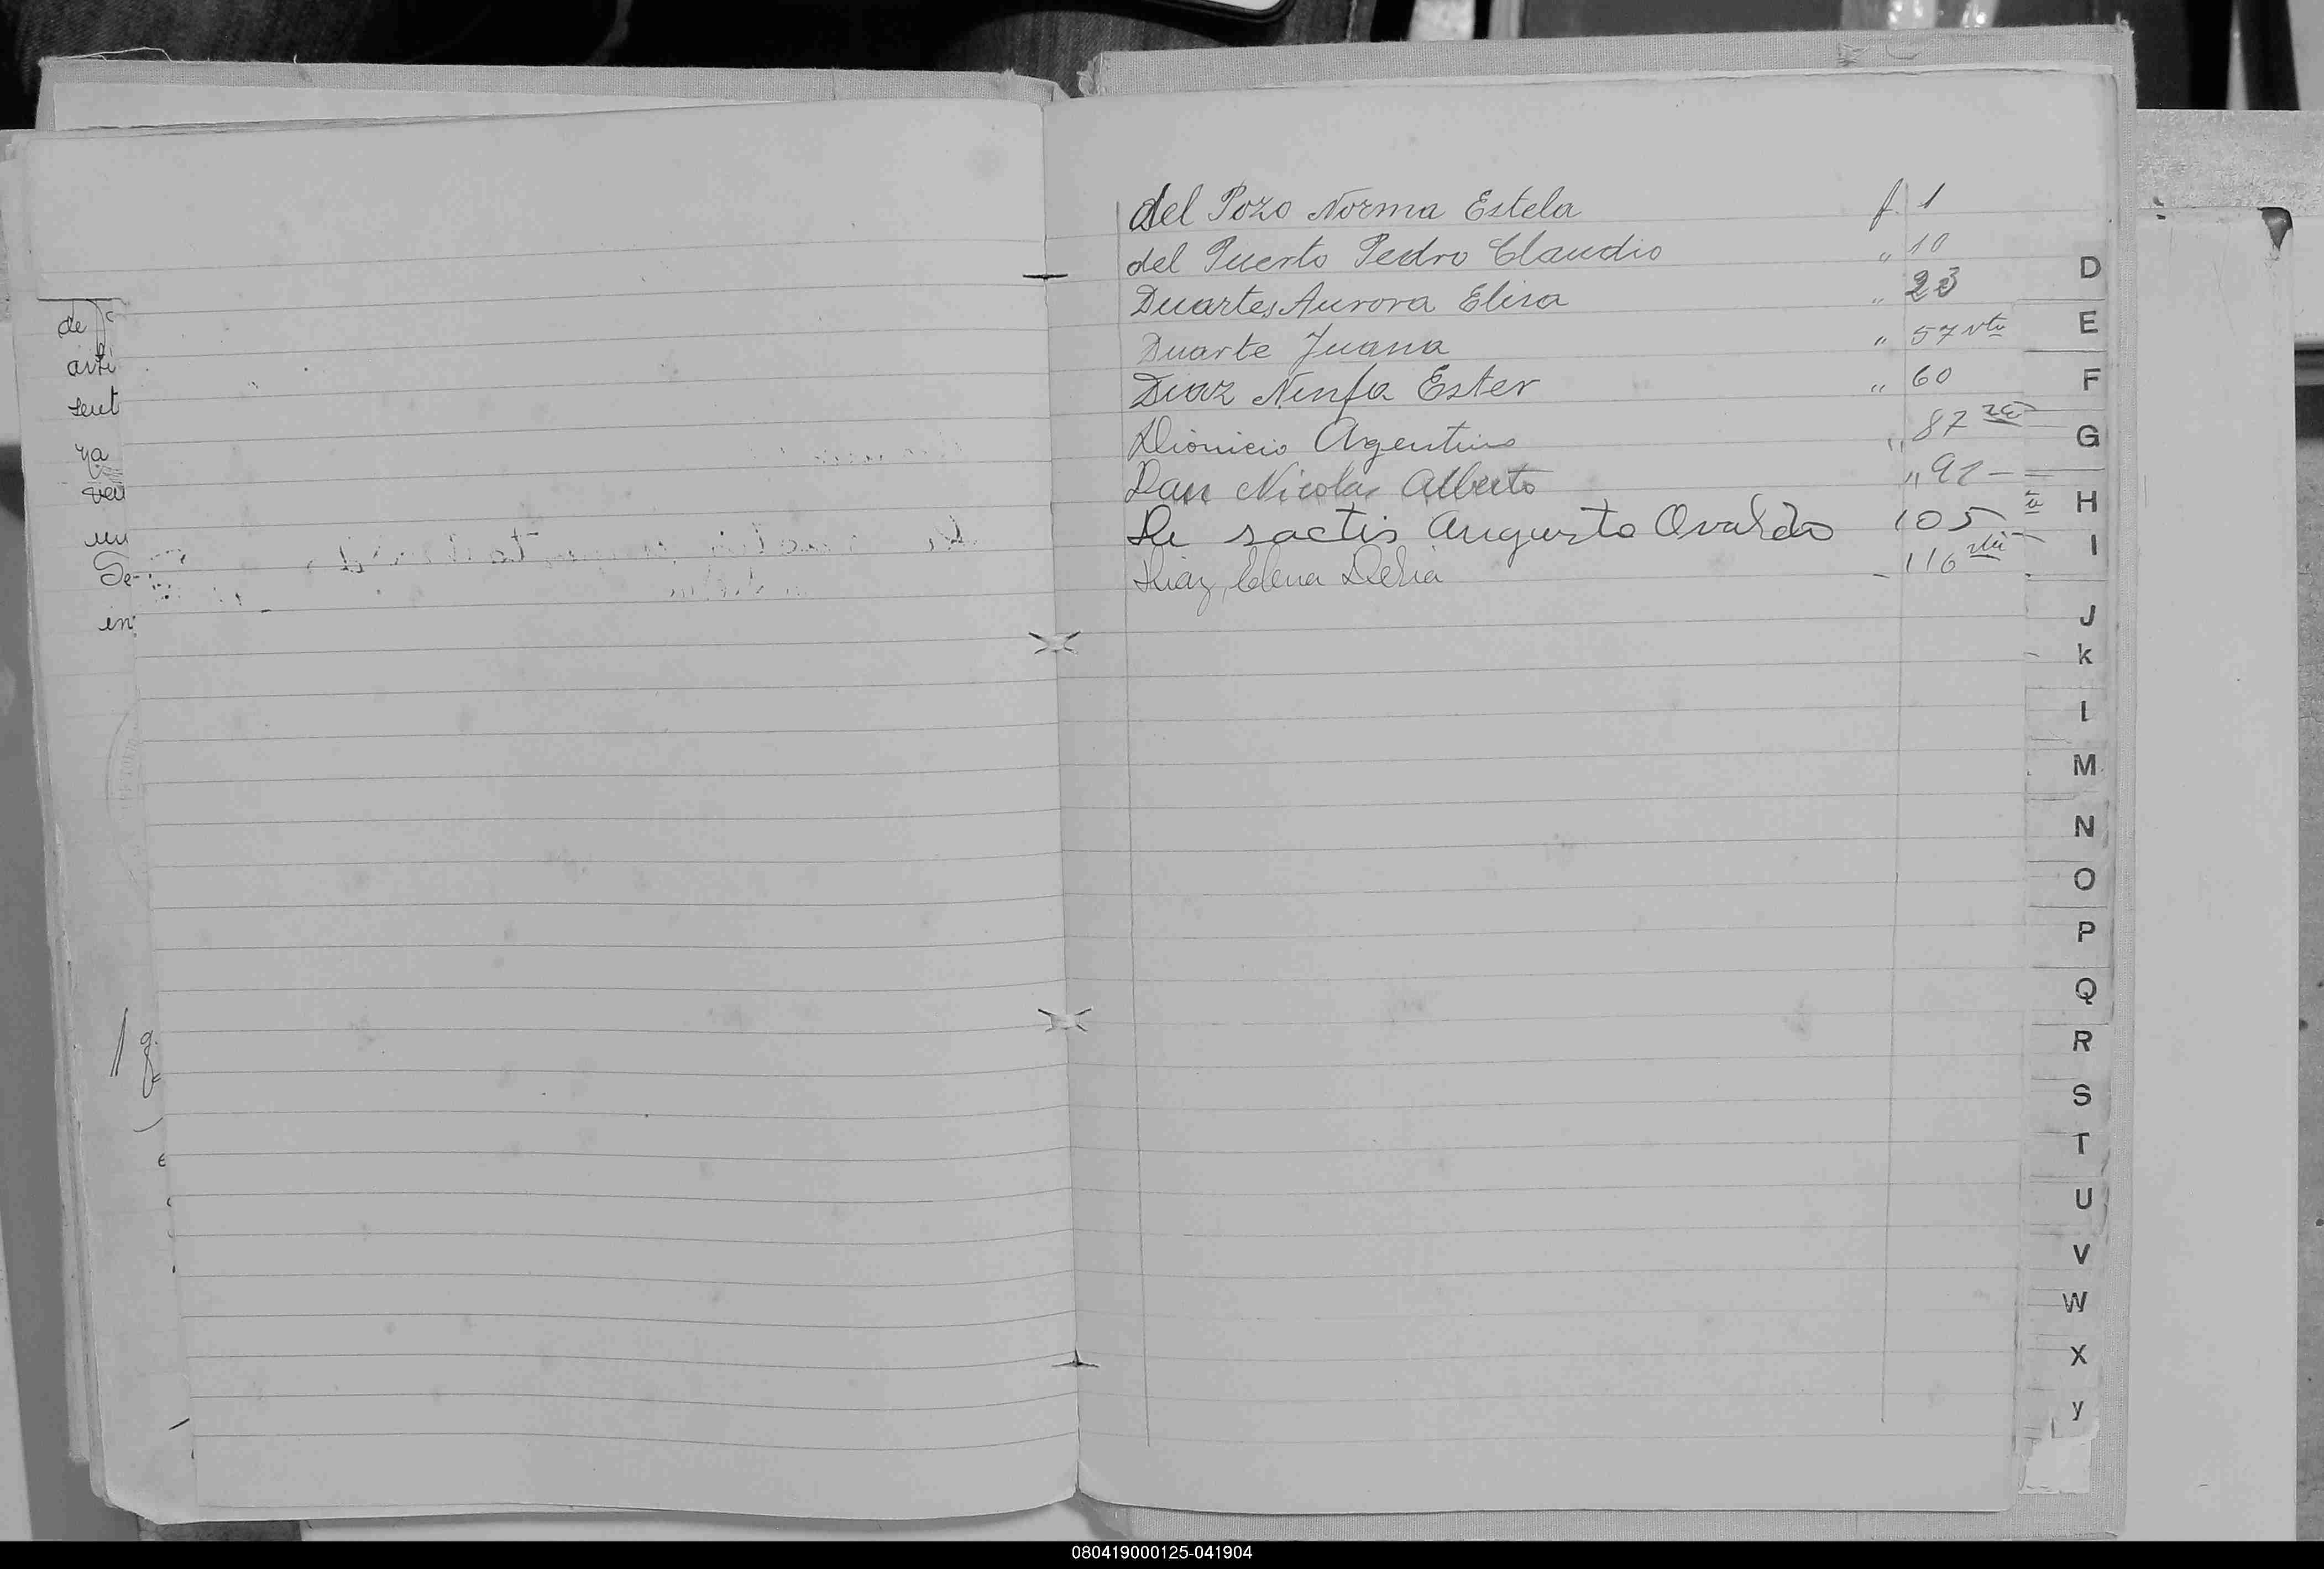 de
arti
sent
ra
ven
un
Se-
in
del Pozo Norma Estela f. 1
del Puerto Pedro Claudio " 10
Duartes Aurora Elisa " 23
Duarte Juana " 57 vto
Diaz Ninfa Ester " 60
Dionicio Argentino " 87
Dan Nicolas Alberto " 91 -
De sactis Augusto Ovaldo 105
Diaz, Elena Delia - 116 vto
D
E
F
G
H
I
J
k
l
M
N
O
P
Q
R
S
T
U
V
W
X
y
080419000125-041904